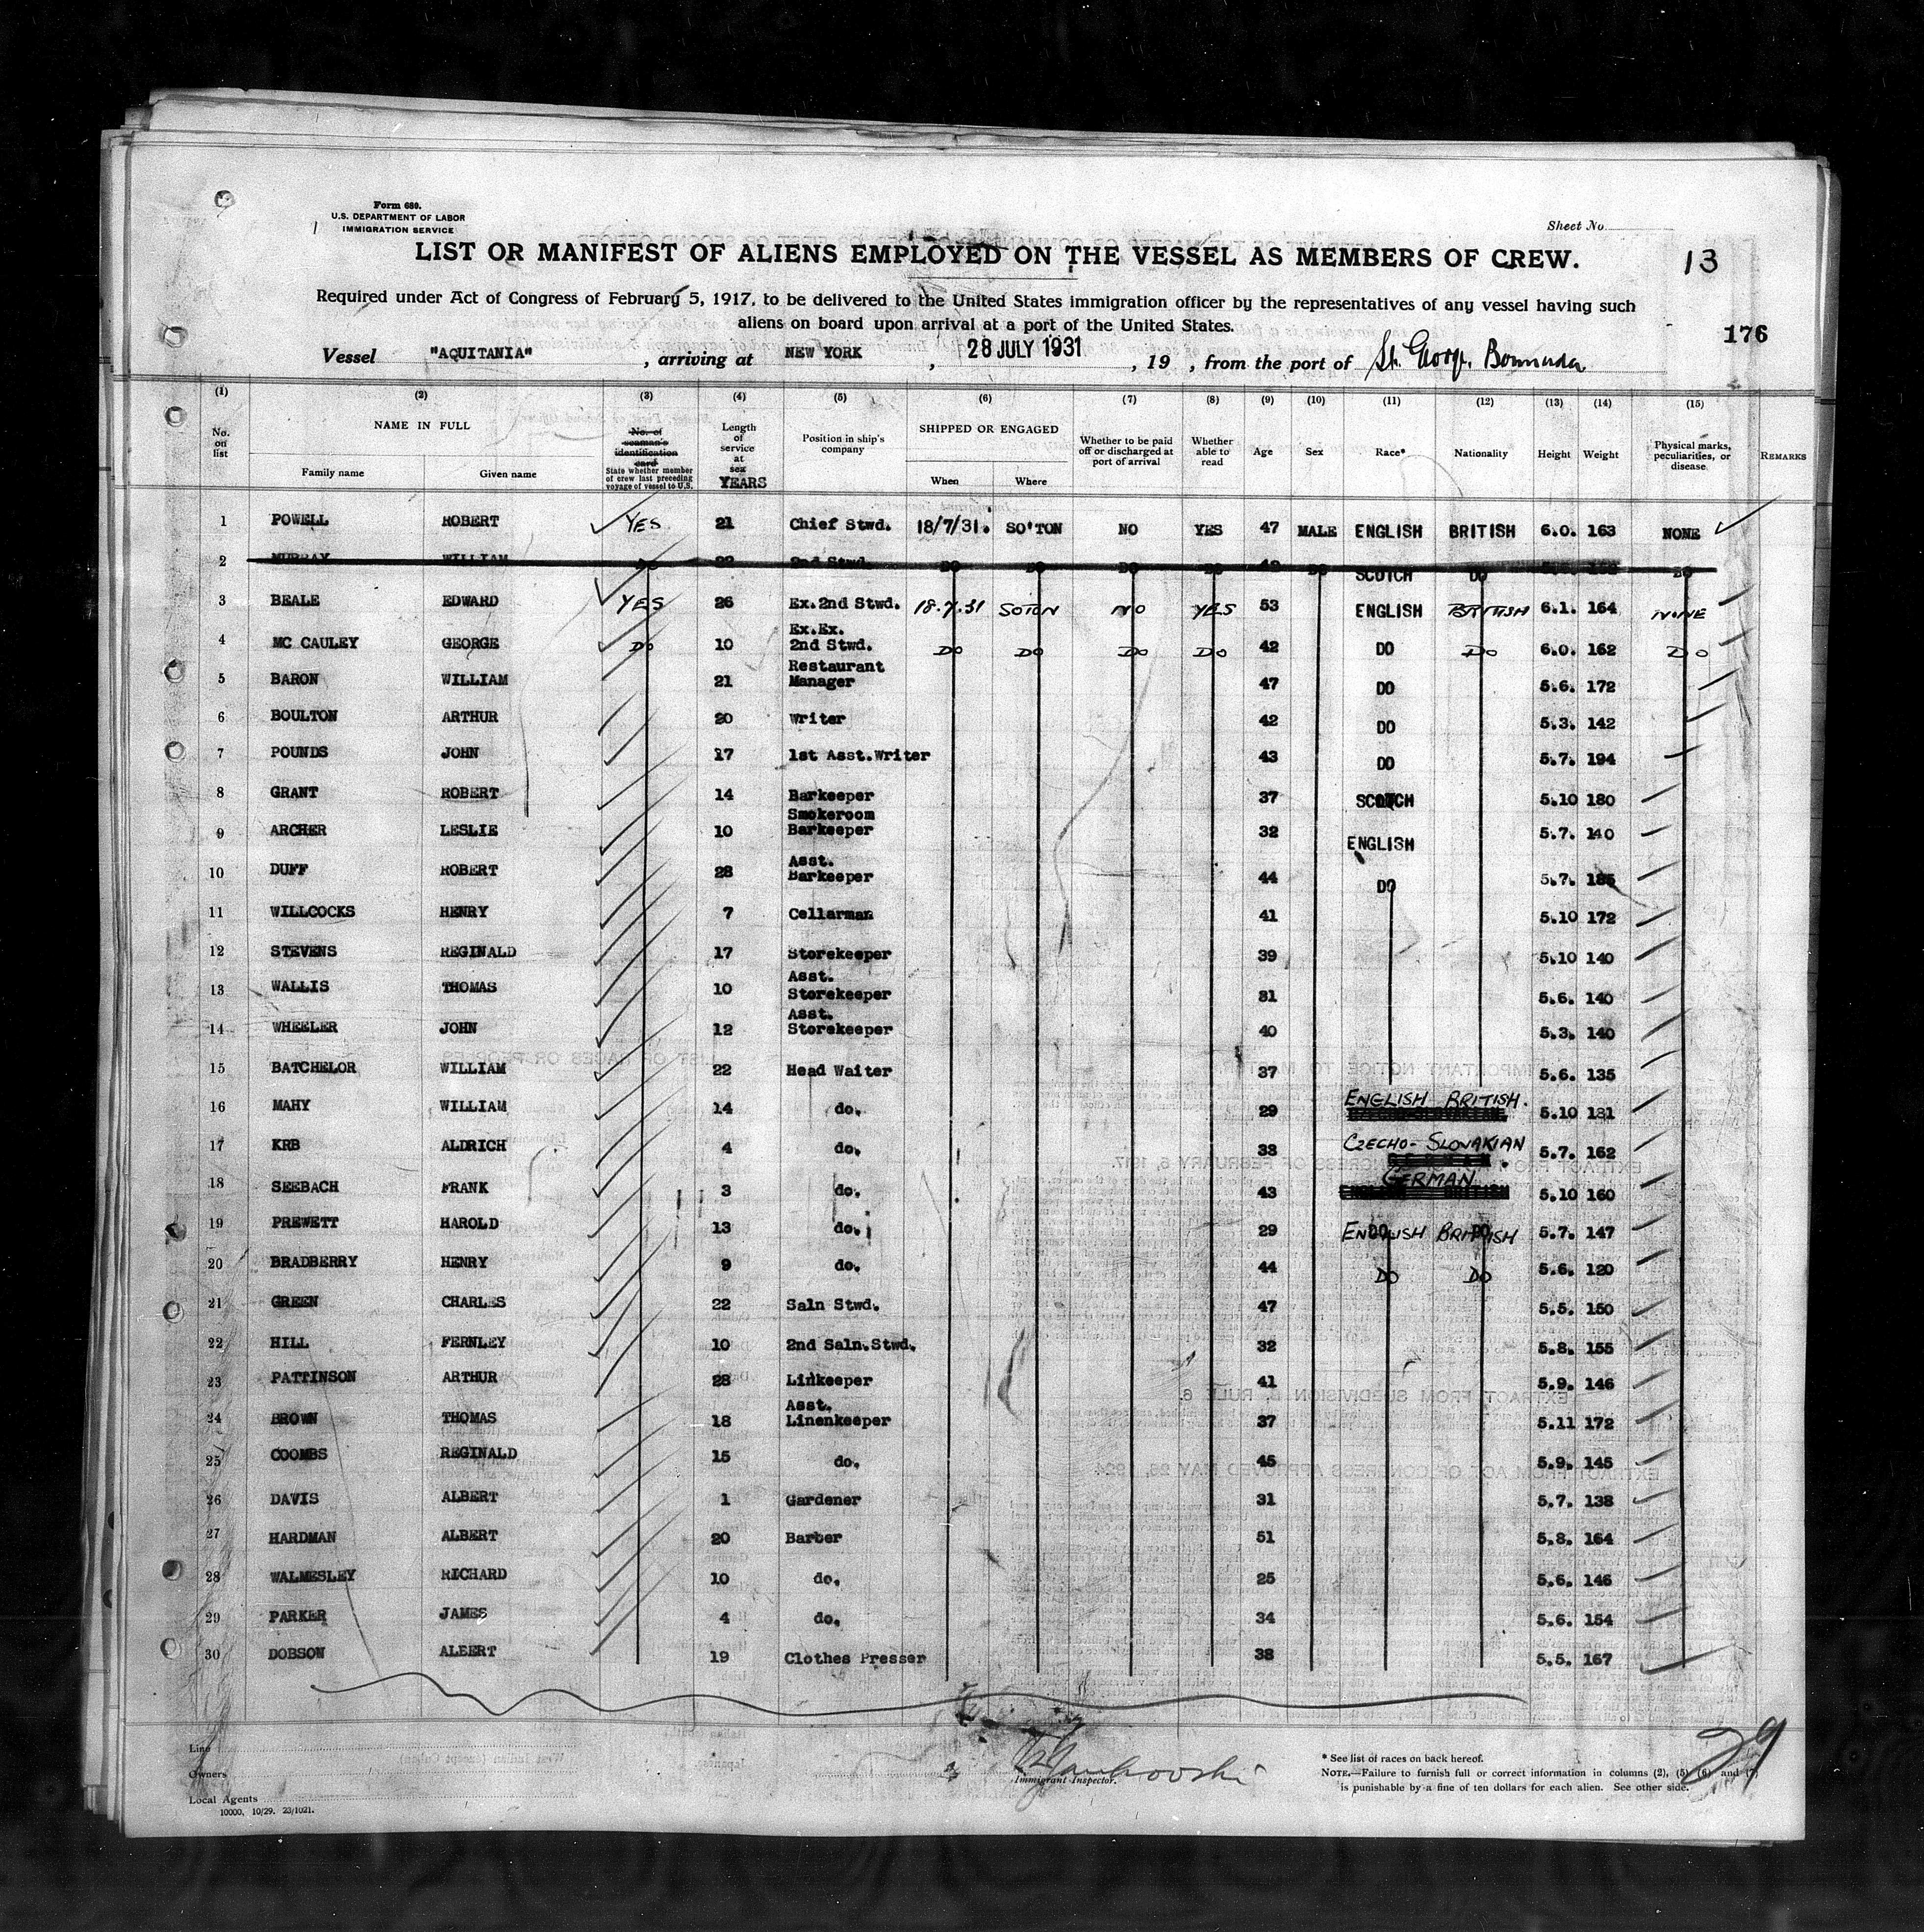 Form 680.
U.S. DEPARTMENT OF LABOR
IMMIGRATION SERVICE
Sheet No.
LIST OR MANIFEST OF ALIENS EMPLOYED ON THE VESSEL AS MEMBERS OF CREW.
13
Required under Act of Congress of February 5, 1917, to be delivered to the United States immigration officer by the representatives of any vessel having such
aliens on board upon arrival at a port of the United States.
176
Vessel "AQUITANIA", arriving at NEW YORK, 28 JULY 1931, 19 , from the port of St. George, Bermuda
(1) (2) (3) (4) (5) (6) (7) (8) (9) (10) (11) (12) (13) (14) (15)
No. on list
NAME IN FULL
Family name Given name
No. of seaman's identification card
State whether member of crew last preceding voyage of vessel to U.S.
Length of service at sea YEARS
Position in ship's company
SHIPPED OR ENGAGED
When Where
Whether to be paid off or discharged at port of arrival
Whether able to read
Age Sex Race* Nationality Height Weight
Physical marks, peculiarities, or disease
REMARKS
1 POWELL ROBERT YES 21 Chief Stwd. 18/7/31. SO'TON NO YES 47 MALE ENGLISH BRITISH 6.0. 163 NONE
2 MURRAY WILLIAM DO 22 2nd Stwd. DO DO DO DO 42 DO SCOTCH DO DO
3 BEALE EDWARD YES 26 Ex.2nd Stwd. 18.7.31 SOTON NO YES 53 ENGLISH BRITISH 6.1. 164 NONE
4 MC CAULEY GEORGE DO 10 Ex.Ex. 2nd Stwd. DO DO DO DO 42 DO DO 6.0. 162 DO
5 BARON WILLIAM 21 Restaurant Manager 47 DO 5.6. 172
6 BOULTON ARTHUR 20 Writer 42 DO 5.3. 142
7 POUNDS JOHN 17 1st Asst.Writer 43 DO 5.7. 194
8 GRANT ROBERT 14 Barkeeper 37 SCOTCH 5.10 180
9 ARCHER LESLIE 10 Smokeroom Barkeeper 32 ENGLISH 5.7. 140
10 DUFF ROBERT 28 Asst. Barkeeper 44 DO 5.7. 185
11 WILLCOCKS HENRY 7 Cellarman 41 5.10 172
12 STEVENS REGINALD 17 Storekeeper 39 5.10 140
13 WALLIS THOMAS 10 Asst. Storekeeper 31 5.6. 140
14 WHEELER JOHN 12 Asst. Storekeeper 40 5.3. 140
15 BATCHELOR WILLIAM 22 Head Waiter 37 5.6. 135
16 MAHY WILLIAM 14 do. 29 ENGLISH BRITISH. 5.10 181
17 KRB ALDRICH 4 do. 33 CZECHO-SLOVAKIAN 5.7. 162
18 SEEBACH FRANK 3 do. 43 GERMAN 5.10 160
19 PREWETT HAROLD 13 do. 29 ENGLISH BRITISH 5.7. 147
20 BRADBERRY HENRY 9 do. 44 DO DO 5.6. 120
21 GREEN CHARLES 22 Saln Stwd. 47 5.5. 150
22 HILL FERNLEY 10 2nd Saln.Stwd. 32 5.8. 155
23 PATTINSON ARTHUR 28 Linkeeper 41 5.9. 146
24 BROWN THOMAS 18 Asst. Linenkeeper 37 5.11 172
25 COOMBS REGINALD 15 do. 45 5.9. 145
26 DAVIS ALBERT 1 Gardener 31 5.7. 138
27 HARDMAN ALBERT 20 Barber 51 5.8. 164
28 WALMESLEY RICHARD 10 do. 25 5.6. 146
29 PARKER JAMES 4 do. 34 5.6. 154
30 DOBSON ALBERT 19 Clothes Presser 38 5.5. 167
Line
Owners
Local Agents
10000, 10/29. 23/1021.
Immigrant Inspector.
* See list of races on back hereof.
NOTE.—Failure to furnish full or correct information in columns (2), (5) (6) and (7)
is punishable by a fine of ten dollars for each alien. See other side.
29